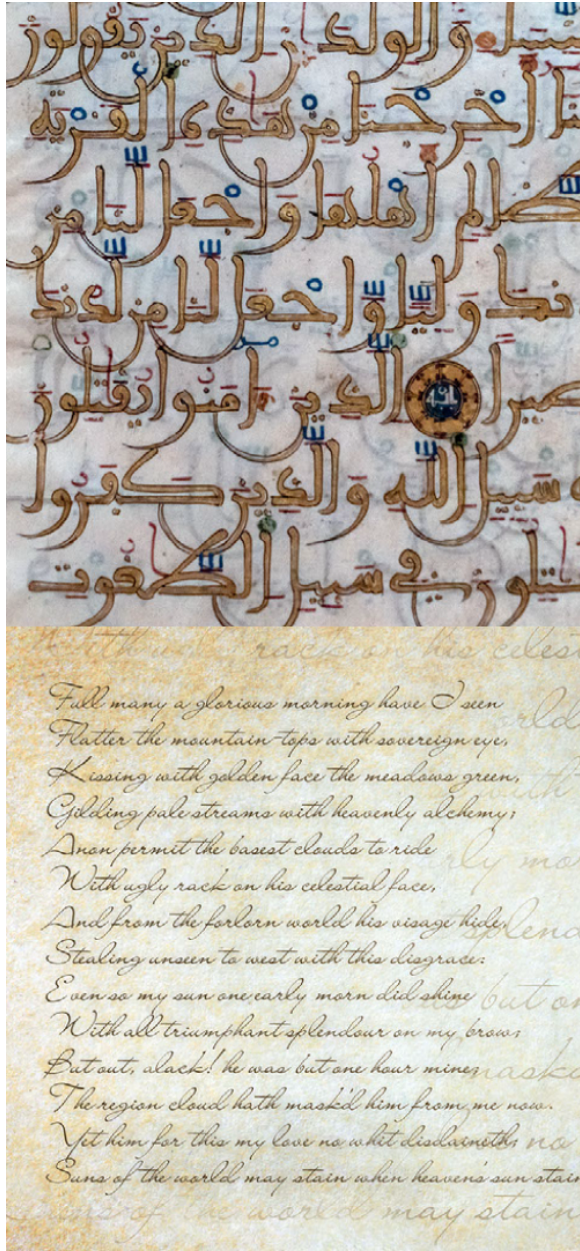 والولدن الذين يقولون
أخرجنا من هذه القرية
الظالم أهلها واجعل لنا من
وليا واجعل لنا من لدنك
نصيرا الذين ءامنوا يقتلون
سبيل الله والذين كفروا
يقتلون في سبيل الطغوت
With ugly rack on his celest
Full many a glorious morning have I seen
Flatter the mountain-tops with sovereign eye,
Kissing with golden face the meadows green,
Gilding pale streams with heavenly alchemy;
Anon permit the basest clouds to ride
With ugly rack on his celestial face,
And from the forlorn world his visage hide,
Stealing unseen to west with this disgrace:
Even so my sun one early morn did shine
With all triumphant splendour on my brow;
But out, alack! he was but one hour mine;
The region cloud hath mask'd him from me now.
Yet him for this my love no whit disdaineth;
Suns of the world may stain when heaven's sun stain
Suns of the world may stain